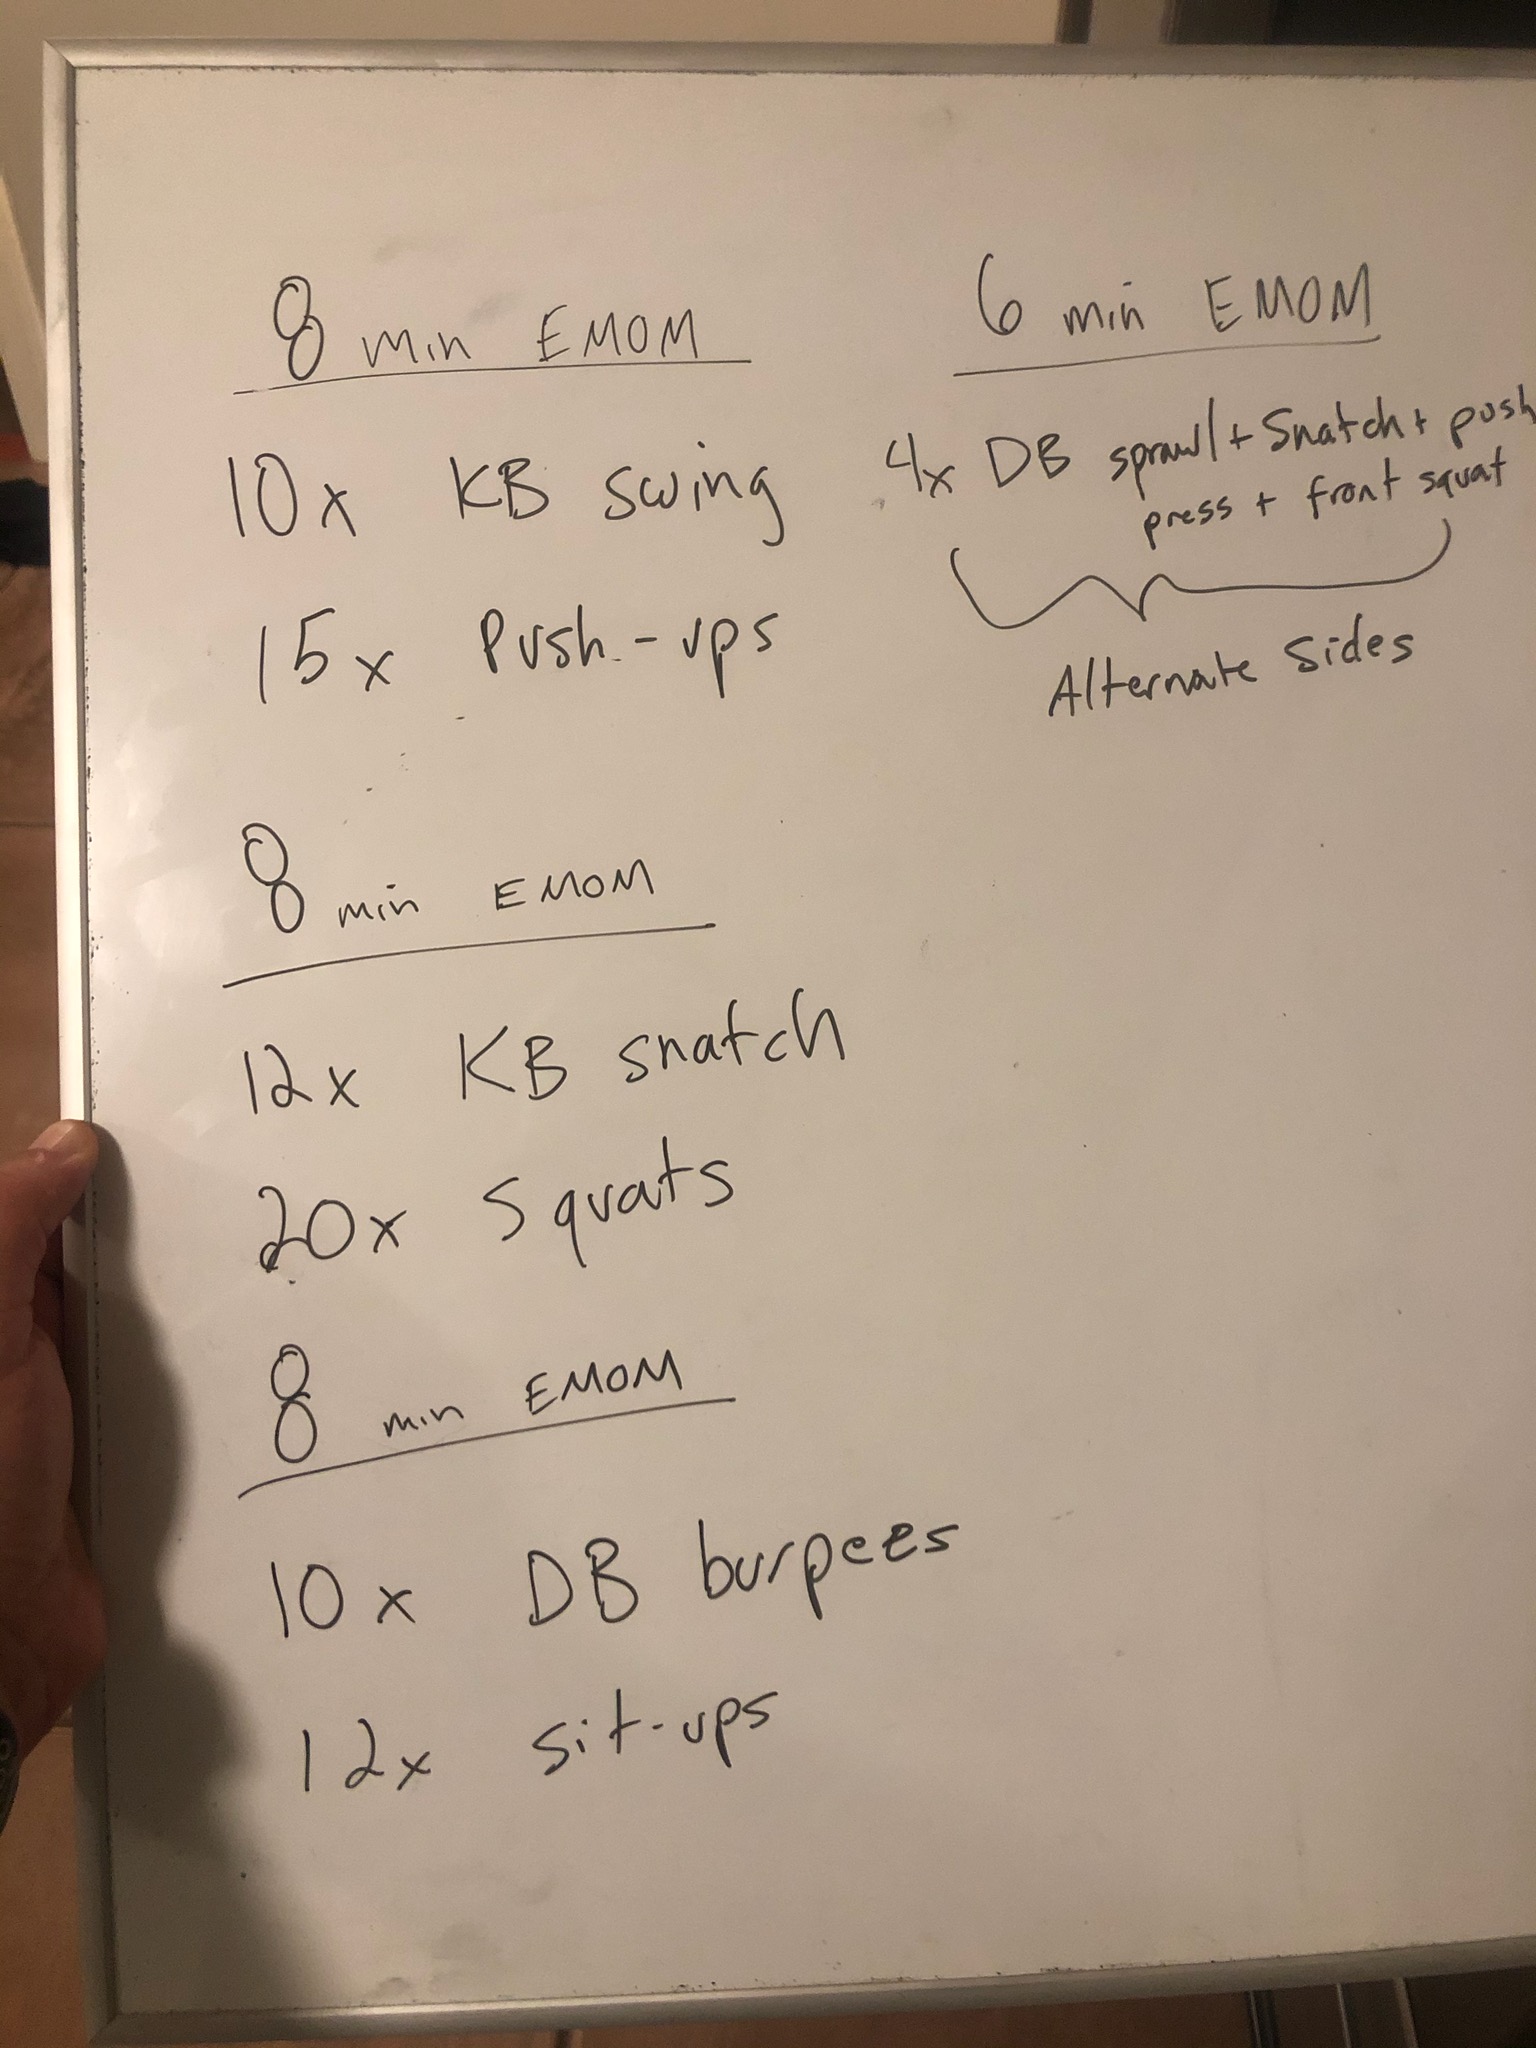 8 min EMOM
10x KB swing
15x Push-ups
8 min EMOM
12x KB snatch
20x Squats
8 min EMOM
10x DB burpees
12x sit-ups
6 min EMOM
4x DB sprawl + Snatch + push
press + front squat
Alternate Sides